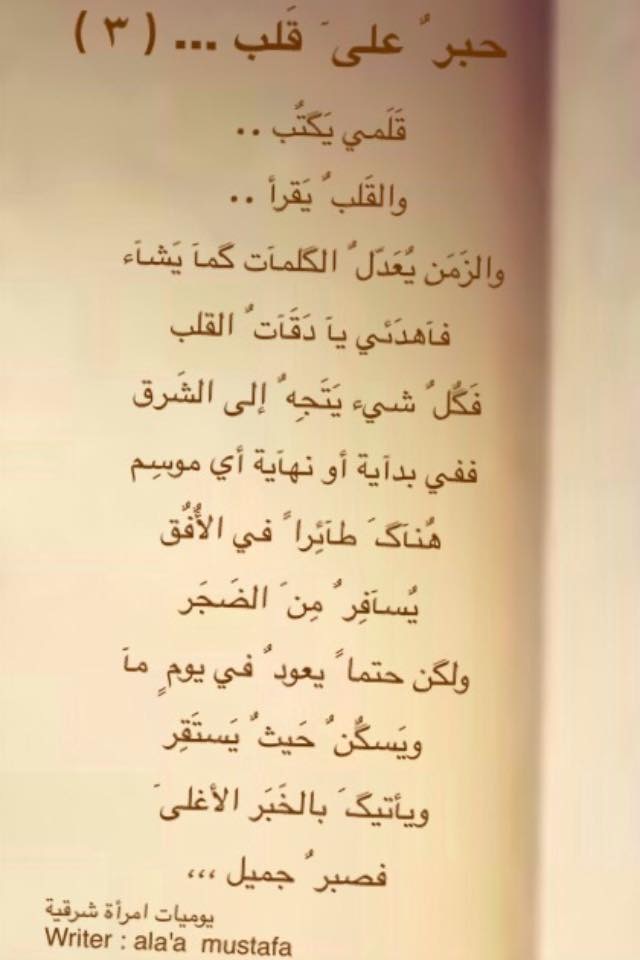 حبر ٌ على َ قَلب ... ( ٣ )
قَلَمي يَكتُب ..
والقَلب ٌ يَقرأ ..
والزَمَن يُعَدّل ٌ الگلمآت گمآ يَشآء
فآهدَئي يآ دَقَآت ٌ القلب
فَكُل ٌ شيء يَتَجِه ٌ إلى الشَرق
ففي بدآية أو نهآية أي موسِم
هُنآگ َ طآئِرا ً في الأُفُق
يُسآفِر ٌ مِن َ الضَجَر
ولگن حتما ً يعود ٌ في يوم ٍ مآ
ويَسكُن ٌ حَيث ٌ يَستَقِر
ويأتيگ َ بالخَبَر الأغلى َ
فصبر ٌ جميل ،،،
يوميات امرأة شرقية
Writer : ala'a mustafa